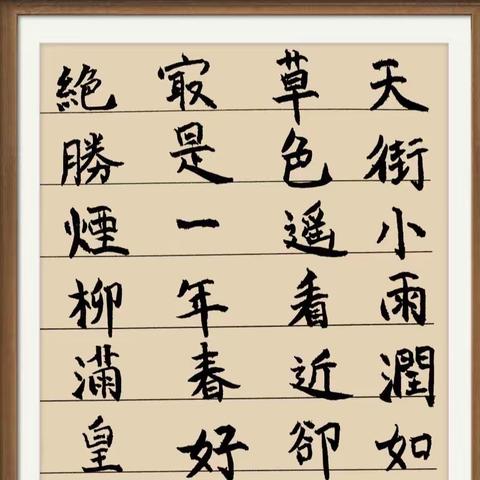 天街小雨潤如
草色遥看近卻
㝡是一年春好
絶勝煙柳滿皇